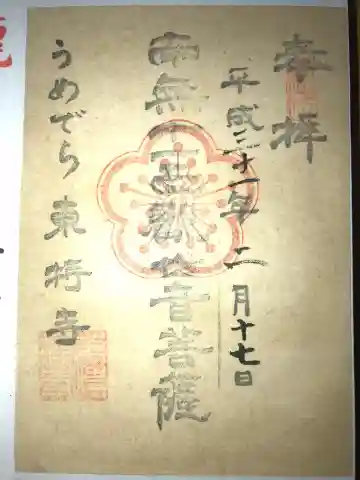 奉拝
平成三十一年二月十七日
南無十一面観世音菩薩
うめでら東将寺